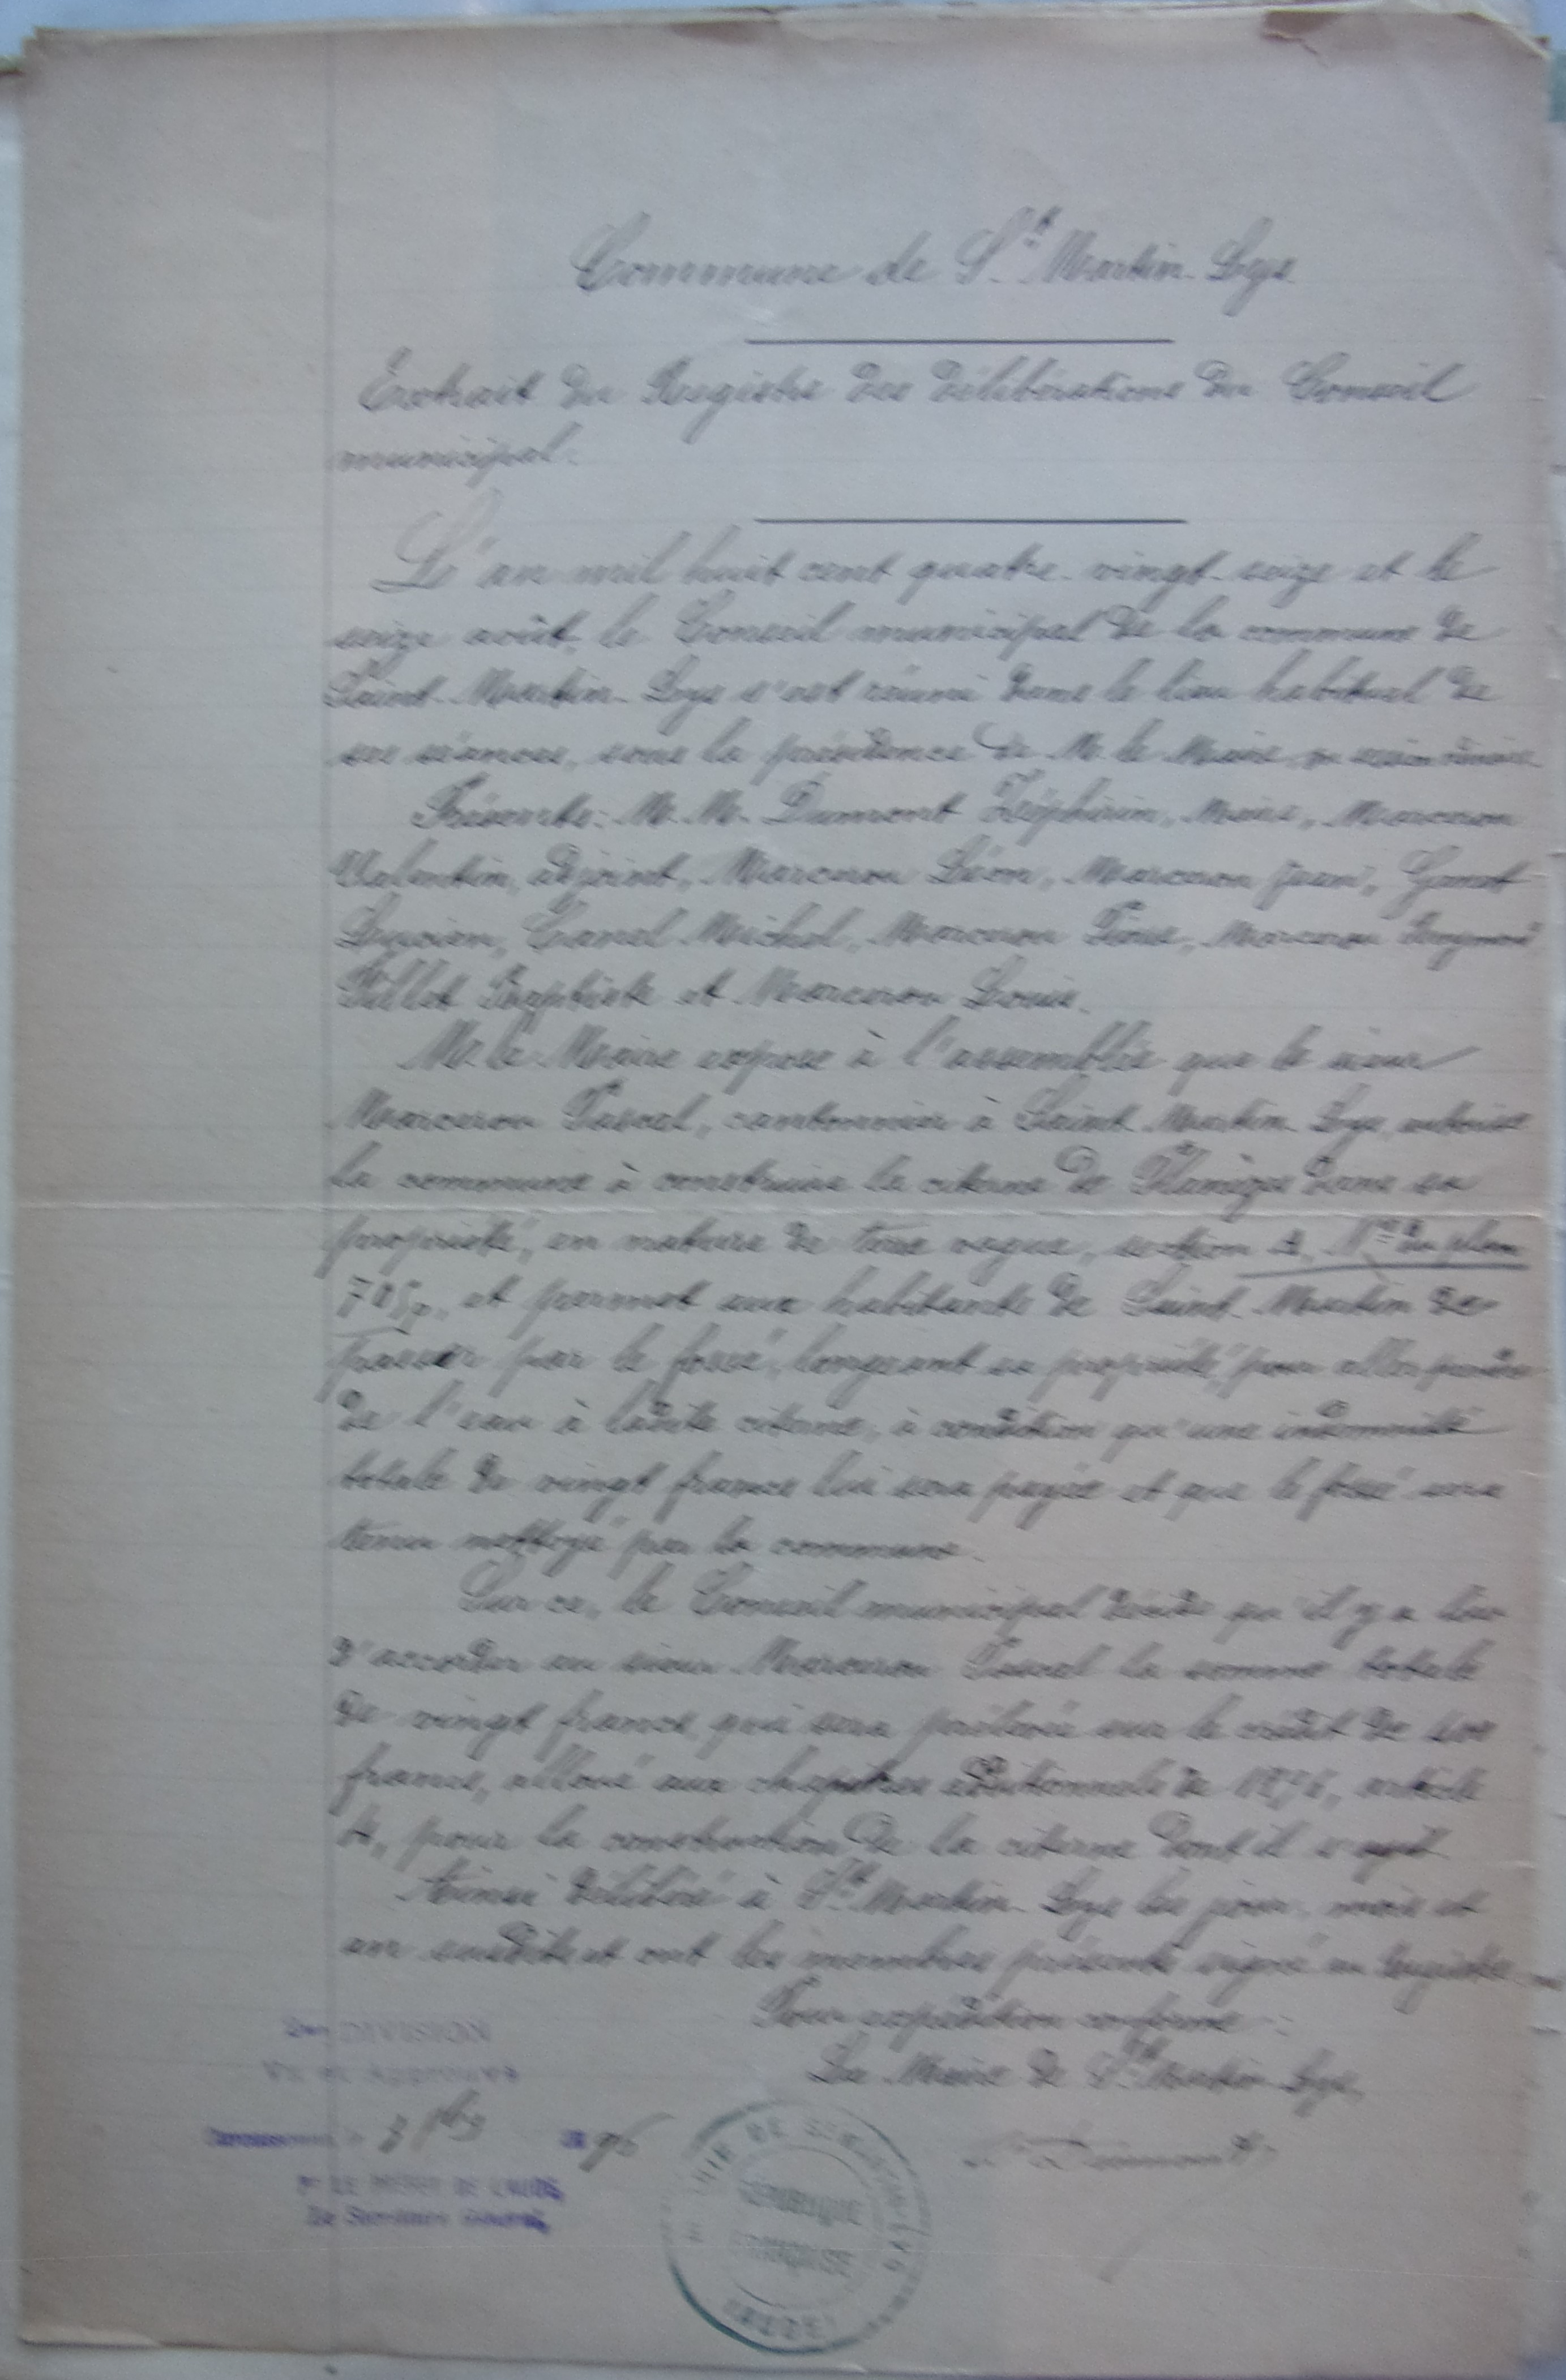 Commune de S.t Martin-Lys
Extrait du Registre des délibérations du Conseil
municipal.
L'an mil huit cent quatre-vingt-seize et le
seize août, le Conseil municipal de la commune de
Saint-Martin-Lys s'est réuni dans le lieu habituel de
ses séances, sous la présidence de M. le Maire, en session
Présents: M.M. Dumont Zéphirin, Maire, Marceron
Valentin, adjoint, Marceron Léon, Marceron Jean,
Lucien, Canal Michel, Marceron Marceron
Baptiste et Marceron Louis.
M. le Maire expose à l'assemblée que le sieur
Marceron Pascal, cantonnier à Saint Martin-Lys, autorise
la commune à construire la citerne de dans sa
propriété, en nature de terre vague, section A, N.o du plan
705p, et permet aux habitants de Saint-Martin de
passer par le fossé, longeant sa propriété, pour aller prendre
de l'eau à ladite citerne, à condition qu'une indemnité
totale de vingt francs lui sera payée et que le fossé sera
tenu nettoyé par la commune.
Sur ce, le Conseil municipal décide qu'il y a lieu
d'accorder au sieur Marceron Pascal la somme totale
de vingt francs, qui sera prélevée sur le crédit de
francs, alloué aux chapitres additionnels de 1896, article
pour la construction de la citerne dont il s'agit.
Ainsi délibéré à S.t Martin-Lys les jour, mois et
an susdits et ont les membres présents signé au Registre.
Pour expédition conforme:
Le Maire de S.t Martin-Lys,
Dumont Z.
2me DIVISION
Vu et Approuvé
Carcassonne, le 96
Pr LE PRÉFET DE L'AUDE,
Le Secrétaire Général,
MAIRIE DE ST MARTIN-LYS
RÉPUBLIQUE
FRANÇAISE
(AUDE)